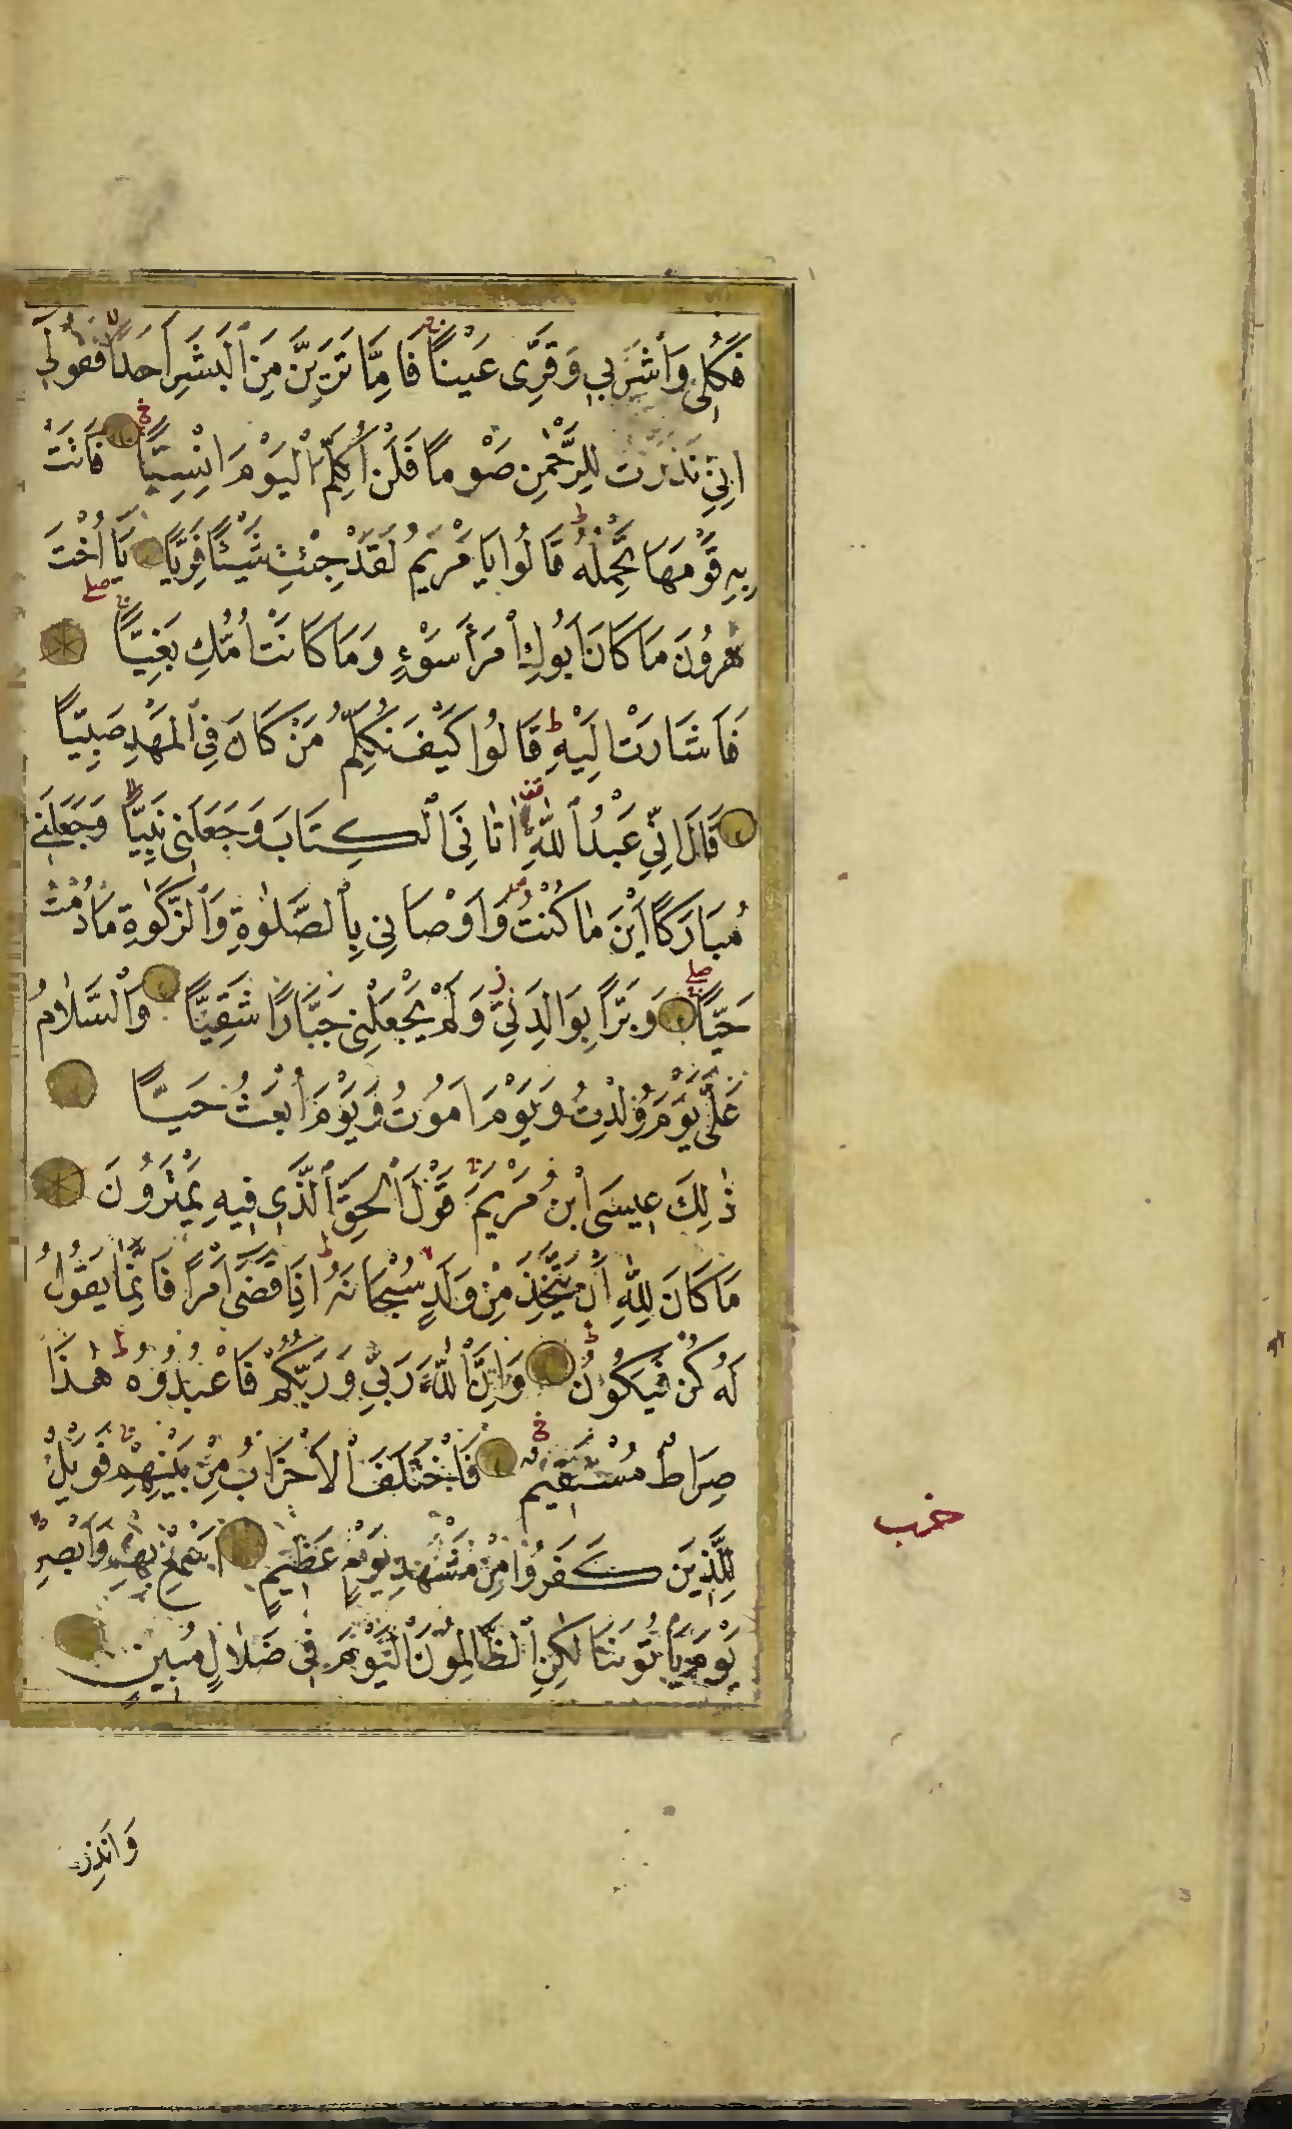 فَكُلِي وَاشْرَبِي وَقَرِّي عَيْنًا فَاِمَّا تَرَيِنَّ مِنَ الْبَشَرِ اَحَدًا فَقُولِي
اِنِّي نَذَرْتُ لِلرَّحْمٰنِ صَوْمًا فَلَنْ اُكَلِّمَ الْيَوْمَ اِنْسِيًّا فَاَتَتْ
بِهِ قَوْمَهَا تَحْمِلُهُ قَالُوا يَا مَرْيَمُ لَقَدْ جِئْتِ شَيْئًا فَرِيًّا يَا اُخْتَ
هٰرُونَ مَا كَانَ اَبُوكِ امْرَأَ سَوْءٍ وَمَا كَانَتْ اُمُّكِ بَغِيًّا
فَاَشَارَتْ اِلَيْهِ قَالُوا كَيْفَ نُكَلِّمُ مَنْ كَانَ فِي الْمَهْدِ صَبِيًّا
قَالَ اِنِّي عَبْدُ اللّٰهِ اٰتَانِيَ الْكِتَابَ وَجَعَلَنِي نَبِيًّا وَجَعَلَنِي
مُبَارَكًا اَيْنَ مَا كُنْتُ وَاَوْصَانِي بِالصَّلٰوةِ وَالزَّكٰوةِ مَا دُمْتُ
حَيًّا وَبَرًّا بِوَالِدَتِي وَلَمْ يَجْعَلْنِي جَبَّارًا شَقِيًّا وَالسَّلَامُ
عَلَيَّ يَوْمَ وُلِدْتُ وَيَوْمَ اَمُوتُ وَيَوْمَ اُبْعَثُ حَيًّا
ذٰلِكَ عِيسَى ابْنُ مَرْيَمَ قَوْلَ الْحَقِّ الَّذِي فِيهِ يَمْتَرُونَ
مَا كَانَ لِلّٰهِ اَنْ يَتَّخِذَ مِنْ وَلَدٍ سُبْحَانَهُ اِذَا قَضٰى اَمْرًا فَاِنَّمَا يَقُولُ
لَهُ كُنْ فَيَكُونُ وَاِنَّ اللّٰهَ رَبِّي وَرَبُّكُمْ فَاعْبُدُوهُ هٰذَا
صِرَاطٌ مُسْتَقِيمٌ فَاخْتَلَفَ الْاَحْزَابُ مِنْ بَيْنِهِمْ فَوَيْلٌ
لِلَّذِينَ كَفَرُوا مِنْ مَشْهَدِ يَوْمٍ عَظِيمٍ اَسْمِعْ بِهِمْ وَاَبْصِرْ
يَوْمَ يَأْتُونَنَا لٰكِنِ الظَّالِمُونَ الْيَوْمَ فِي ضَلَالٍ مُبِينٍ
حزب
وَاَنْذِرْ